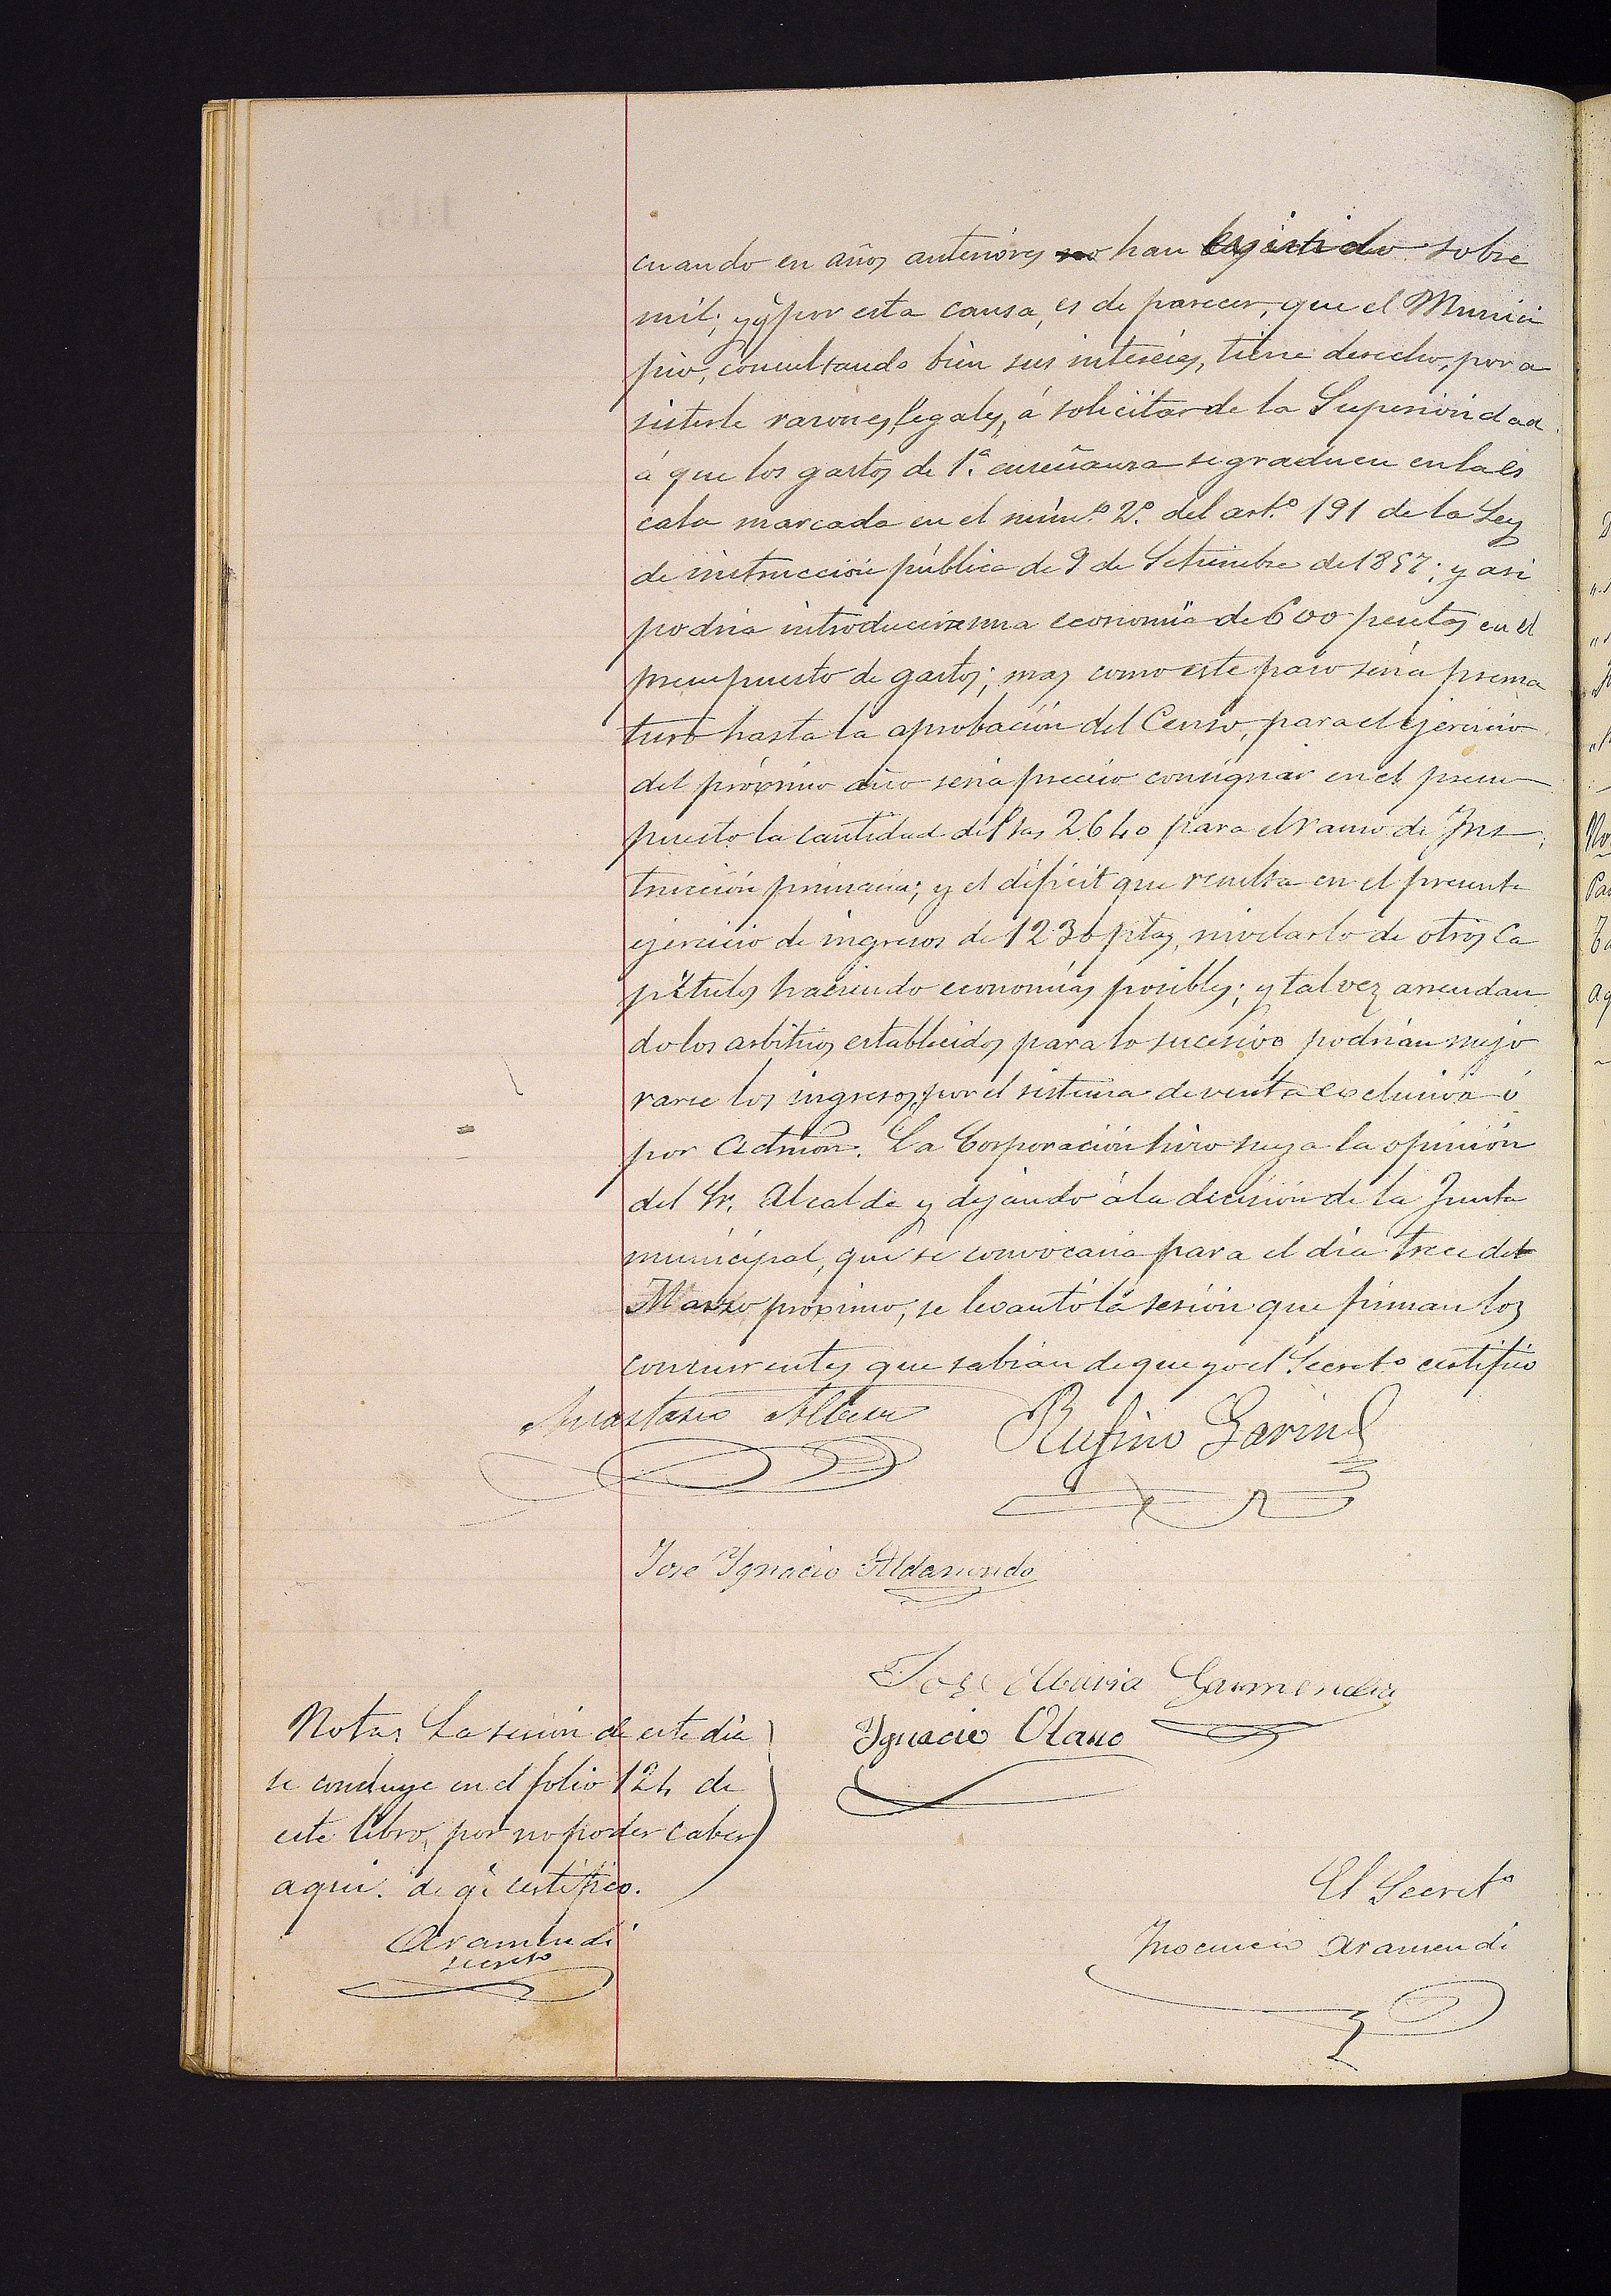 cuando en años anteriores no han existido sobre
mil; y q.e por esta causa, es de parecer, que el Munici
pio, consultando bien sus intereses, tiene derecho, por a
sisterle razones legales, á solicitar de la Superioridad
á que los gastos de 1.ª enseñanza se graduen en la es
cala marcada en el núm.º 2.º del art.º 191 de la Ley
de instrucción pública de 9 de Setiembre de 1857; y asi
podria introducirse una economia de 600 pesetas en el
presupuesto de gastos; mas como este paso seria prema
turo hasta la aprobación del Censo, para el ejercicio
del próximo año seria preciso consignar en el presu
puesto la cantidad de Ptas 2640 para el ramo de Ins
trucción primaria; y el déficit que resulta en el presente
ejercicio de ingresos de 1230 ptas, nivelarlo de otros Ca
pitulos haciendo economias posibles; y tal vez arrendan
do los arbitrios establecidos para lo sucesivo podrian mejo
rarse los ingresos, por el sistema de venta exclusiva ó
por Admon. La Corporación hizo suya la opinión
del Sr. Alcalde y dejando á la decisión de la Junta
municipal, que se convocaria para el dia trece del
Marzo próximo, se levantó la sesión que firman los
concurrentes que sabian de que yo el Secret.o certifico
Anastasio
Rufino Garin
Jose Ignacio Aldasundo
Jose Maria Garmendia
Ignacio Olano
Nota: La sesión de este dia
se concluye en el folio 124 de
este libro, por no poder caber
aqui. de q.e certifico.
Aramendi
secreto
El Secret.o
Inocencio Aramendi